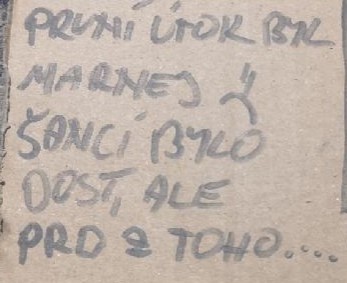 PRVNÍ ÚTOK BYL
MARNEJ !!
ŠANCÍ BYLO
DOST, ALE
PRD Z TOHO....